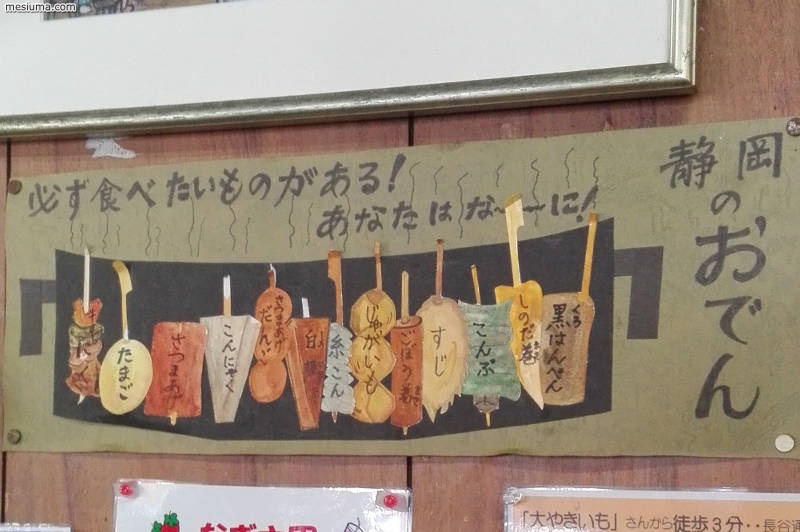 mesiuma.com
必ず食べたいものがある!
あなたはな〜〜に!
静岡
のおでん
たまご
さつまあげ
こんにゃく
さつまあげ
だんご
白
糸こん
じゃがいも
ごぼう巻
すじ
こんぶ
しのだ巻
黒はんぺん
くろ
「大やきいも」さんから徒歩3分‥長谷